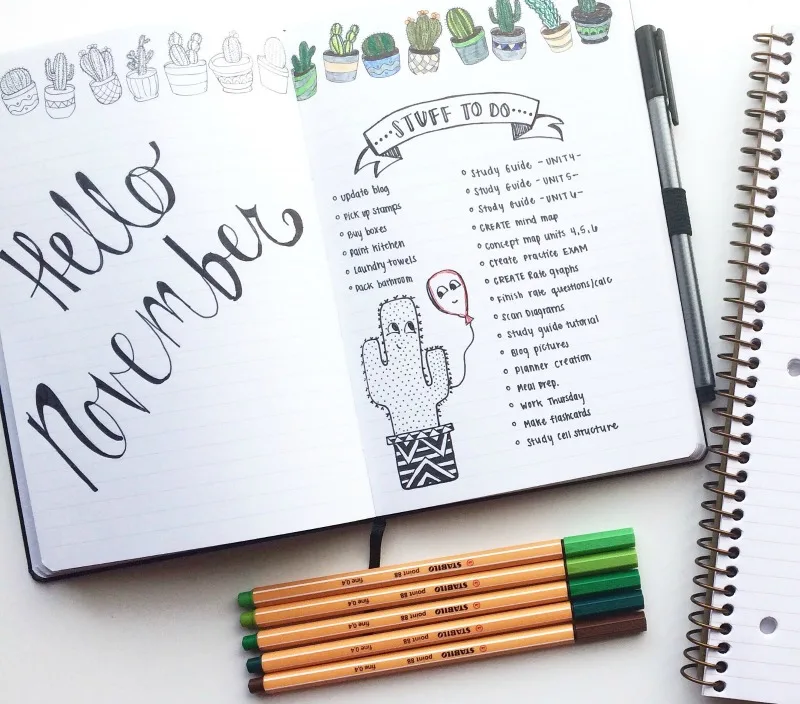 Hello
November
STUFF TO DO
update blog
Pick up stamps
Buy boxes
Paint kitchen
Laundry towels
Pack bathroom
Study Guide -UNIT 4-
Study Guide -UNIT 5-
Study Guide -UNIT 6-
CREATE mind map
Concept map units 4,5,6
Create Practice EXAM
CREATE Rate graphs
Finish rate questions/calc
Scan Diagrams
Study guide tutorial
Blog pictures
Planner Creation
Meal Prep.
Work Thursday
Make flashcards
Study cell structure
STABILO point 88 fine 0,4
STABILO point 88 fine 0,4
STABILO point 88 fine 0,4
STABILO point 88 fine 0,4
STABILO point 88 fine 0,4